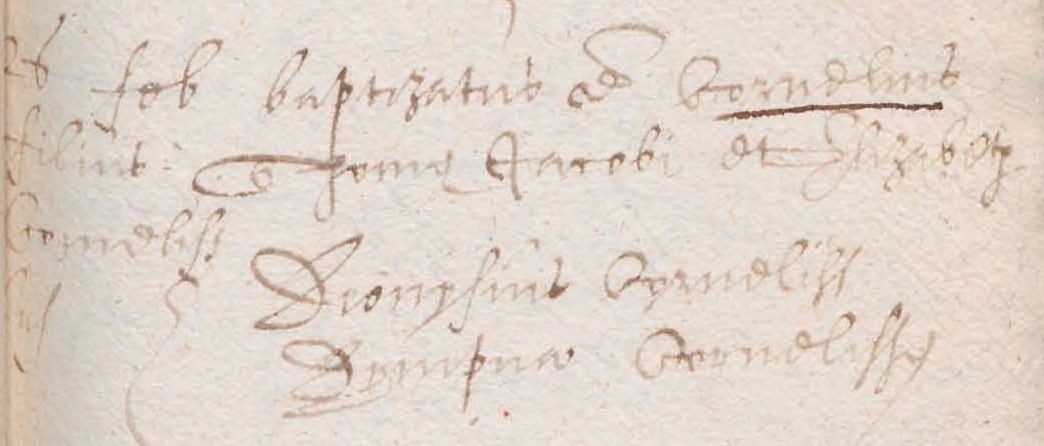 26 feb baptizatus est Cornelius
filius Thome Jacobi et Elizabeth
Cornelisse
sus Dionysius Cornelisse
Dympna Cornelisse